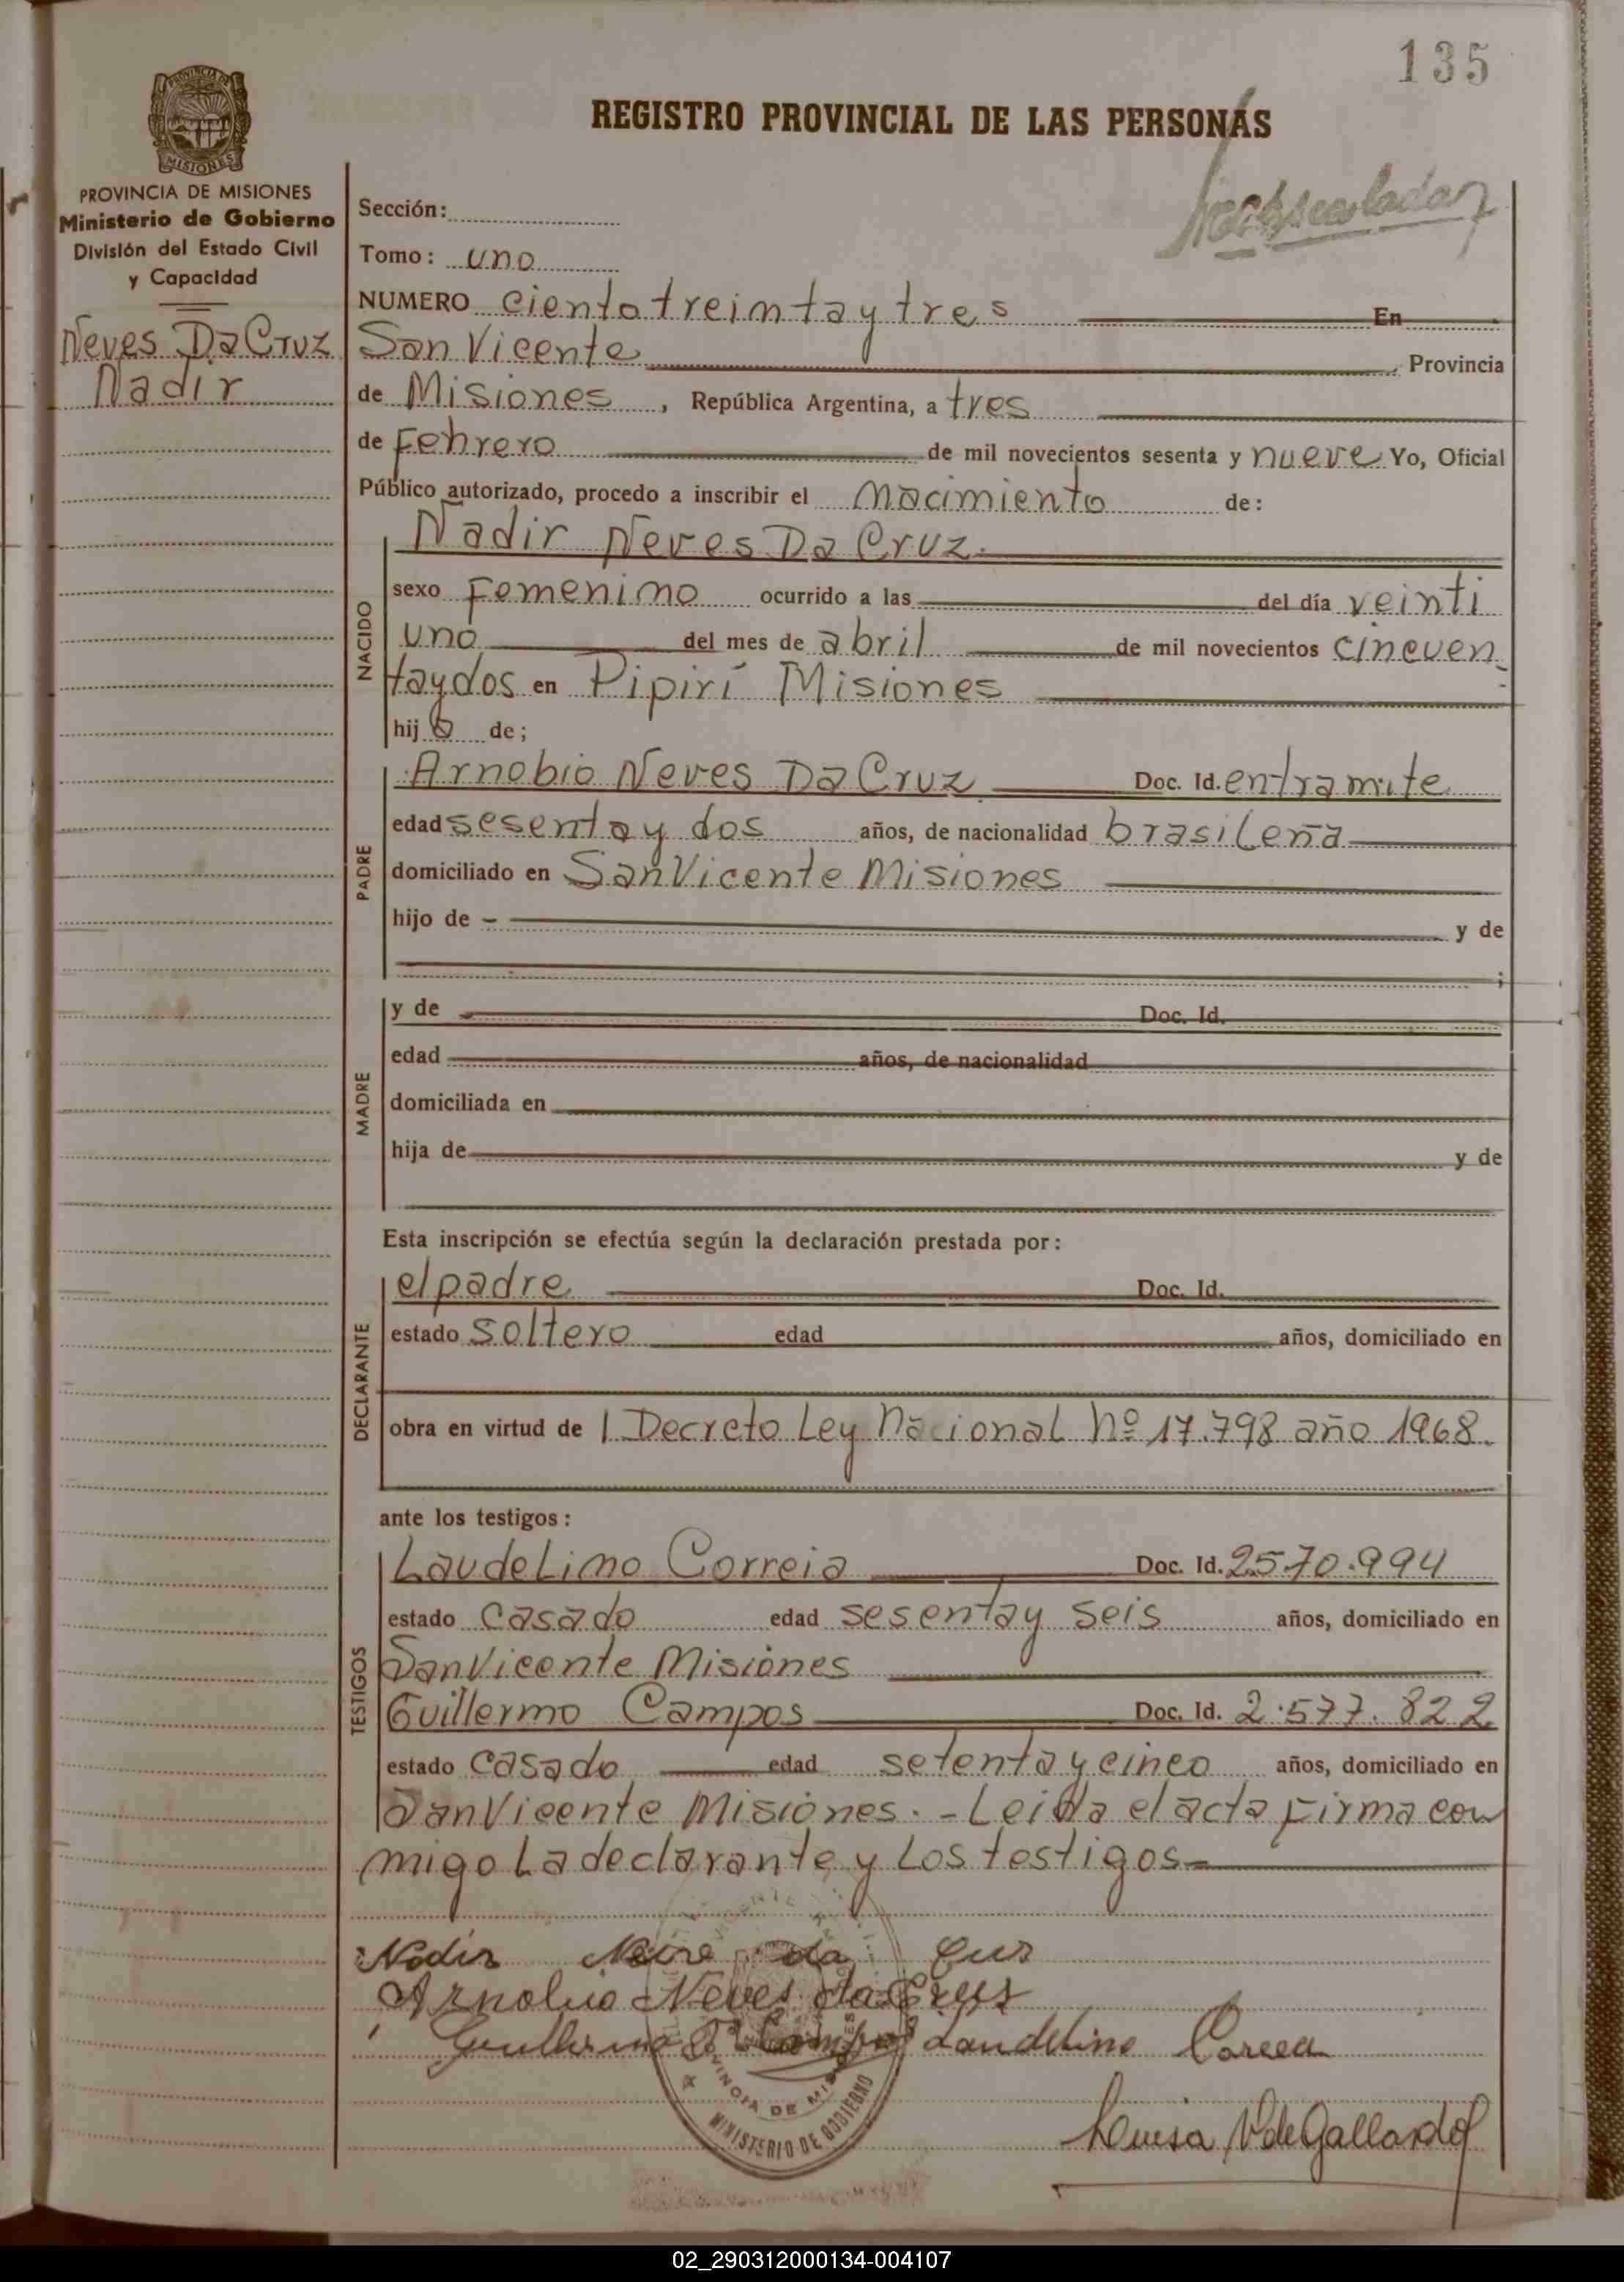 135
REGISTRO PROVINCIAL DE LAS PERSONAS
PROVINCIA DE MISIONES
Ministerio de Gobierno
División del Estado Civil
y Capacidad
Neves Da Cruz
Nadir
Sección:
Tomo: uno
NUMERO ciento treinta y tres En
San Vicente, Provincia
de Misiones, República Argentina, a tres
de Febrero de mil novecientos sesenta y nueve Yo, Oficial
Público autorizado, procedo a inscribir el Nacimiento de:
Nadir Neves Da Cruz.
NACIDO
sexo Femenino ocurrido a las del día veinti
uno del mes de abril de mil novecientos cincuen
taydos en Pipirí Misiones
hij a de;
PADRE
Arnobio Neves Da Cruz Doc. Id. en tramite
edad sesenta y dos años, de nacionalidad brasileña
domiciliado en San Vicente Misiones
hijo de - y de
;
MADRE
y de Doc. Id.
edad años, de nacionalidad
domiciliada en
hija de y de
Esta inscripción se efectúa según la declaración prestada por:
DECLARANTE
el padre Doc. Id.
estado soltero edad años, domiciliado en
obra en virtud de l Decreto Ley Nacional Nº 17.798 año 1968.
ante los testigos:
TESTIGOS
Laudelino Correia Doc. Id. 2.570.994
estado casado edad sesenta y seis años, domiciliado en
San Vicente Misiones
Guillermo Campos Doc. Id. 2.577.822
estado casado edad setenta y cinco años, domiciliado en
San Vicente Misiones.- Leída el acta firma con
migo La declarante y Los testigos-
Nadir da
Arnobio Neves da Cruz
Laudelino Correa
PROVINCIA DE MISIONES
MINISTERIO DE GOBIERNO
Luisa V. de Gallardo
02_290312000134-004107